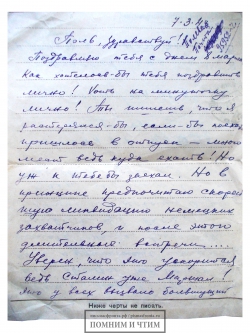 7-3-
Поля, здравствуй!
Поздравляю тебя с днем 8 марта
Как хотелось-бы тебя поздравить
лично! Хоть на минуточку
лично! Ты пишешь, что я
растерялся-бы, если-бы
пришлось в отпуск - много
мест ведь куда ехать! Но
уж к тебе бы заехал. Но в
принципе предпочитаю скорей
шую ликвидацию немецких
захватчиков, и после этого
длительные встречи....
Уверен, что это ускорится
ведь Сталин уже
Это у всех вызвало
Ниже черты не писать.
ПОМНИМ И ЧТИМ